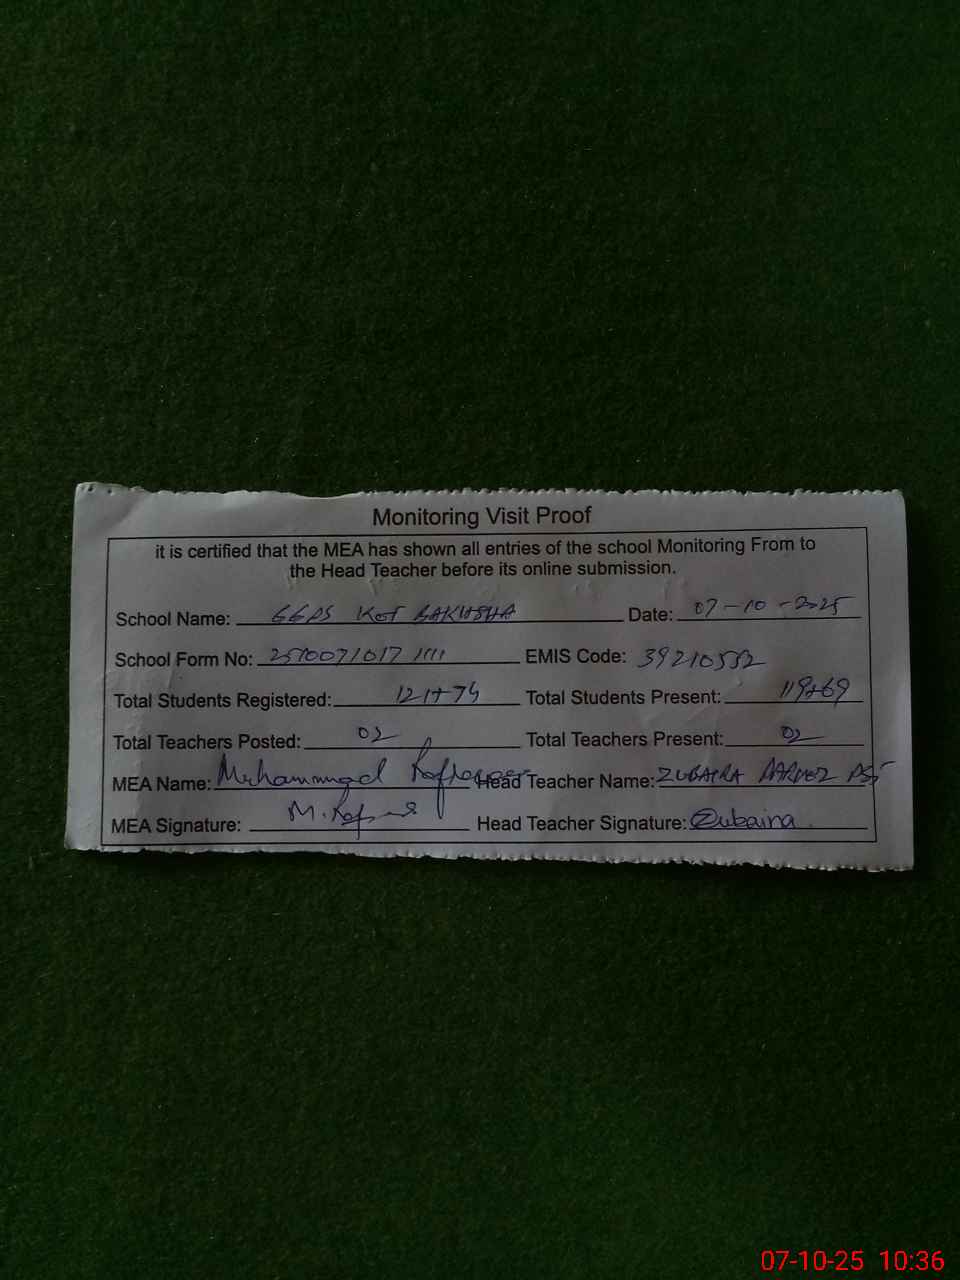 Monitoring Visit Proof
it is certified that the MEA has shown all entries of the school Monitoring From to
the Head Teacher before its online submission.
School Name: GGPS KOT BAKHSHA Date: 07-10-2025
School Form No: 2510071017 1111 EMIS Code: 39210552
Total Students Registered: 121+74 Total Students Present: 119+69
Total Teachers Posted: 02 Total Teachers Present: 02
MEA Name: Muhammad Head Teacher Name: ZUBAIRA PARVEZ PST
MEA Signature: M. Head Teacher Signature: Zubaira
07-10-25 10:36